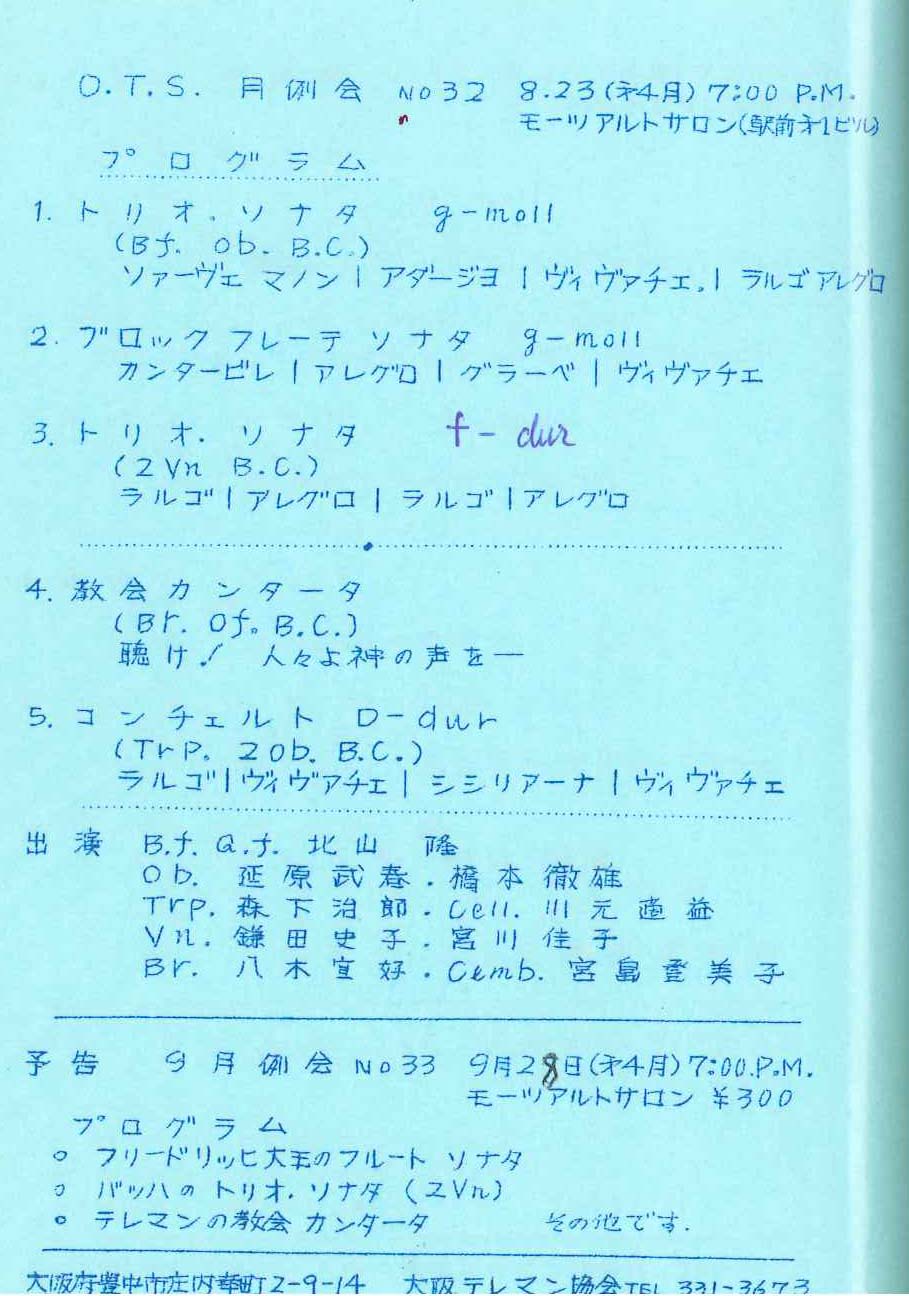 O.T.S. 月例会 No32 8.23(才4月) 7:00 P.M.
モーツアルトサロン(駅前才1ビル)
プログラム
1. トリオ.ソナタ g-moll
(Bf. Ob. B.C.)
ソァーヴェ マノン | アダージヨ | ヴィヴァチェ。| ラルゴ アレグロ
2. ブロックフレーテ ソナタ g-moll
カンタービレ | アレグロ | グラーベ | ヴィヴァチェ
3. トリオ. ソナタ f-dur
(2Vn B.C.)
ラルゴ | アレグロ | ラルゴ | アレグロ
4. 教会カンタータ
(Br. Qf. B.C.)
聴け! 人々よ神の声を—
5. コンチェルト D-dur
(Trp. 2ob. B.C.)
ラルゴ | ヴィヴァチェ | シシリアーナ | ヴィヴァチェ
出演 B.f. Q.f. 北山 隆
Ob. 延原武春.橋本徹雄
Trp. 森下治郎.Cell. 川元適益
Vn. 鎌田史子.宮川佳子
Br. 八木宣好.Cemb. 宮島登美子
予告 9月例会 No33 9月28日(才4月) 7:00.P.M.
モーツアルトサロン ¥300
プログラム
○ フリードリッヒ大王のフルート ソナタ
○ バッハの トリオ.ソナタ (2Vn)
○ テレマンの教会カンタータ その他です.
大阪府豊中市庄内幸町2-9-14 大阪テレマン協会 TEL 331-3673